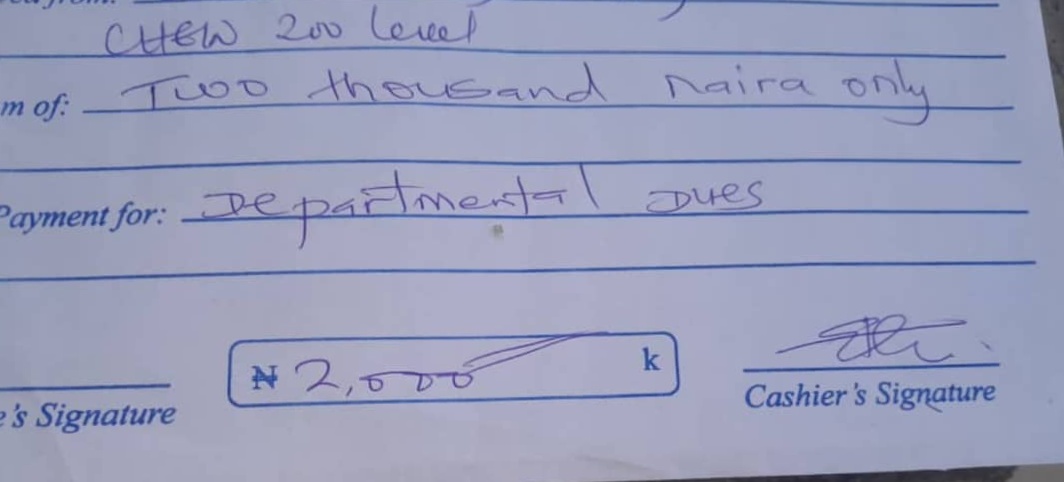 CHEW 200 level
m of: Two thousand naira only
Payment for: Departmental Dues
₦ 2,000 k
's Signature
Cashier's Signature